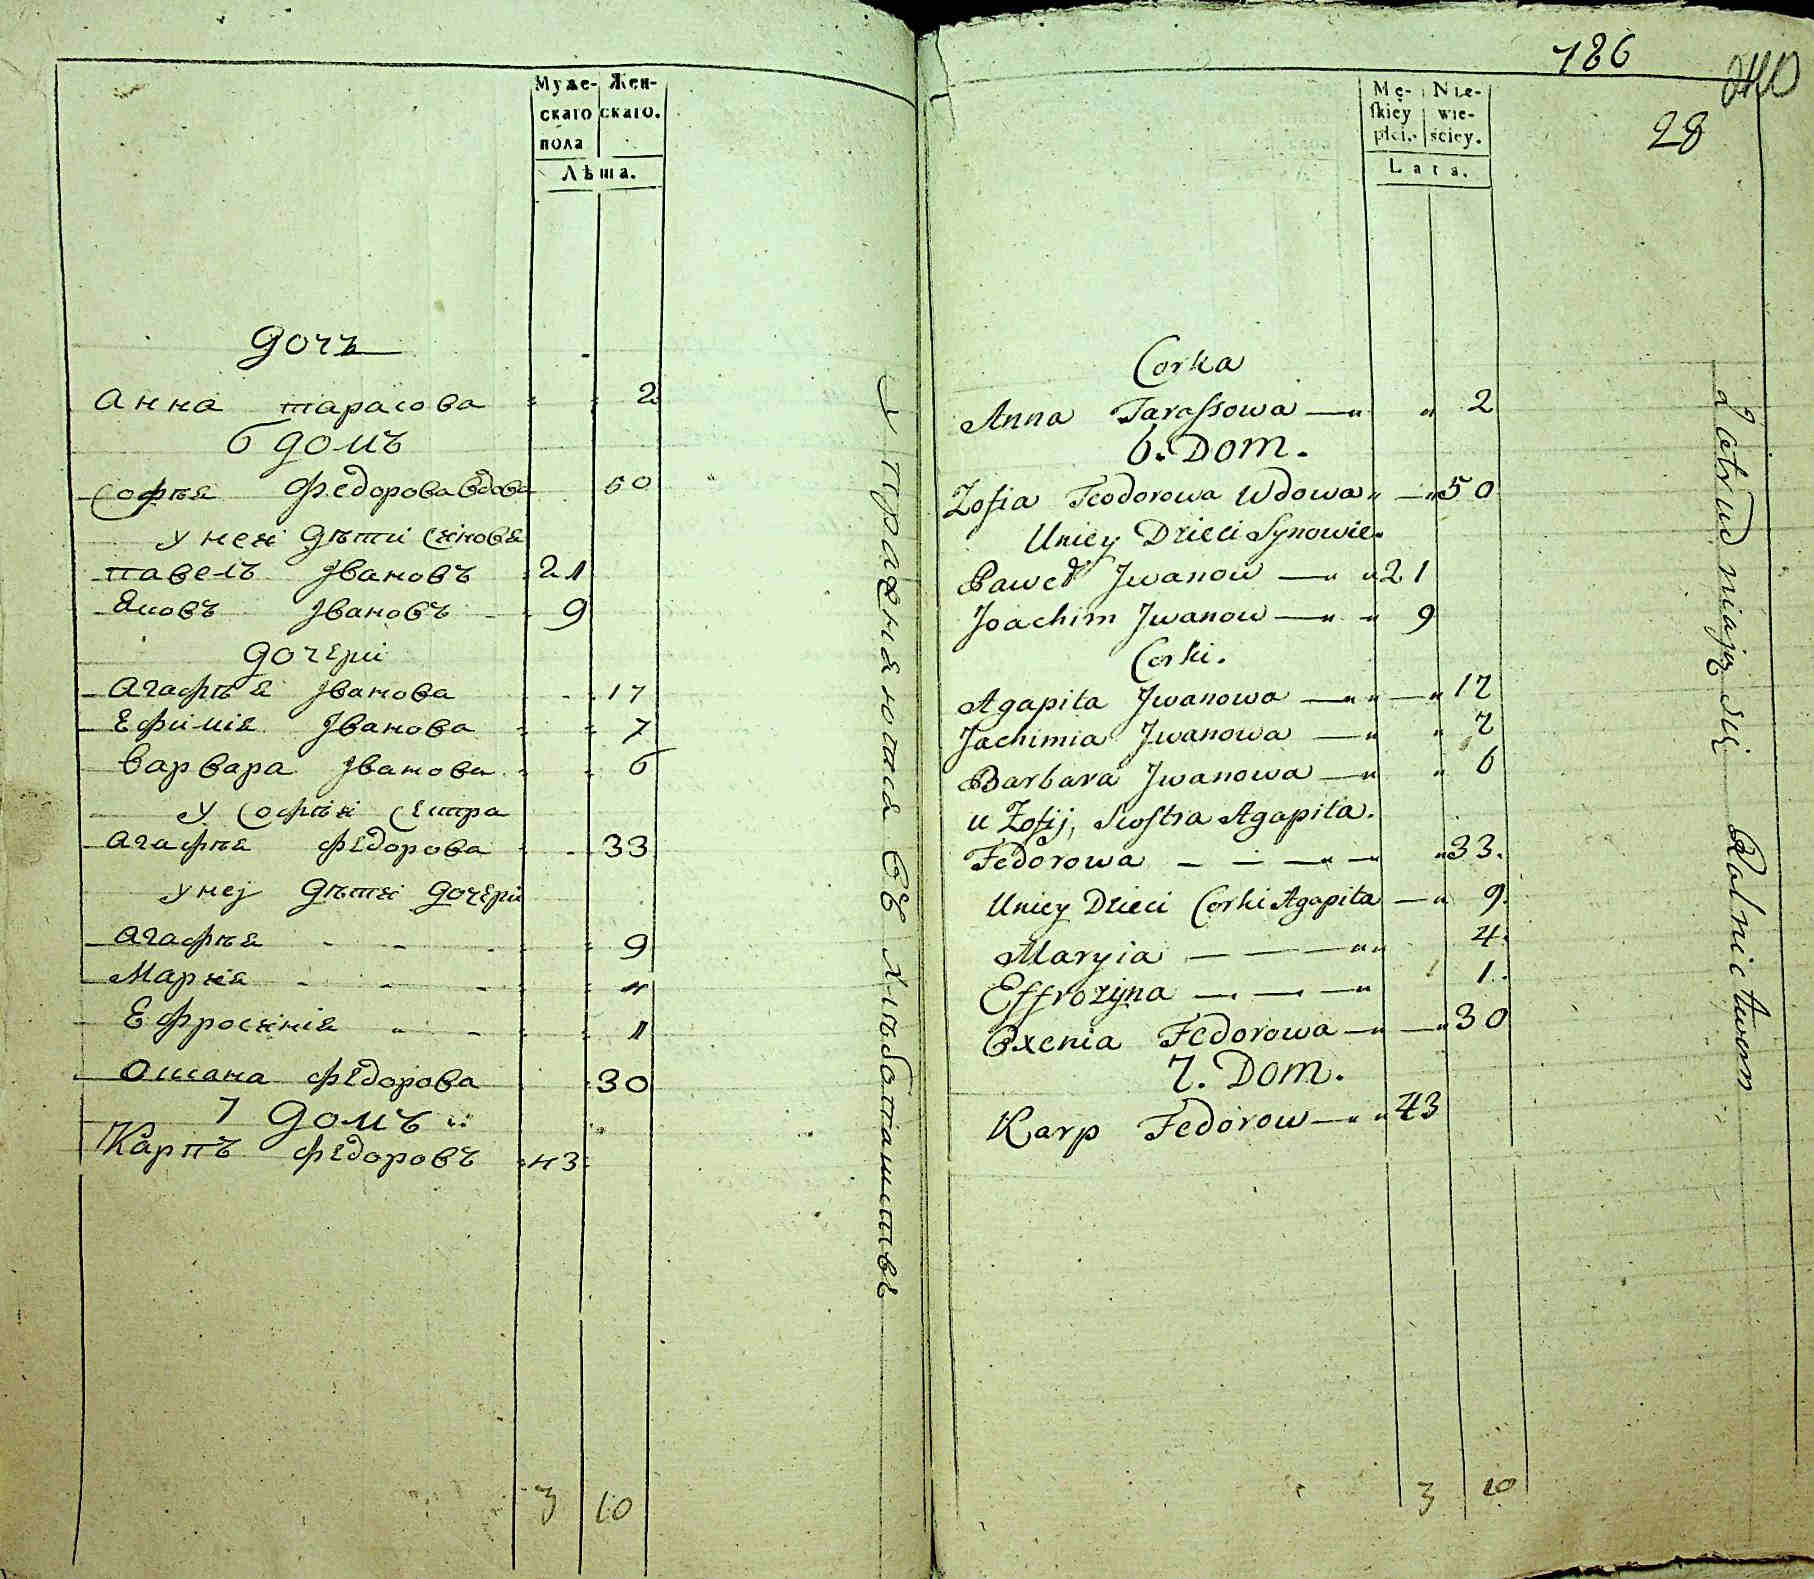 Муже- Жен-
скаго скаго.
пола
Лѣта.
дочь
Анна тарасова 2
6 домъ
Софья Федорова вдова 50
у неи дѣти синовя
павелъ Ивановъ 21
Яковъ Ивановъ 9
дочери
Агафья Иванова 17
Ефимия Иванова 7
Варвара Иванова 6
у Софьи сестра
Агафья Федорова 33
у неј дѣти дочери
Агафья 9
Мария 4
Ефросиния 1
Оксана Федорова 30
7 домъ
Карпъ Федоровъ 43
3 10
Упражняются въ хлѣбопашествѣ
186
28
Mę- Nie-
skiey wie-
płci. ściey.
Lata.
Corka
Anna Tarassowa 2
6. Dom.
Zofia Teodorowa Wdowa 50
Uniey Dzieci Synowie.
Paweł Jwanow 21
Joachim Jwanow 9
Corki.
Agapita Jwanowa 17
Jachimia Jwanowa 7
Barbara Jwanowa 6
u Zofij, Siostra Agapita.
Fedorowa 33.
Uniey Dzieci Corki Agapita 9.
Maryia 4.
Effrozyna 1.
Oxenia Fedorowa 30
7. Dom.
Karp Fedorow 43
3 10
Zatrudniają się Rolnictwem